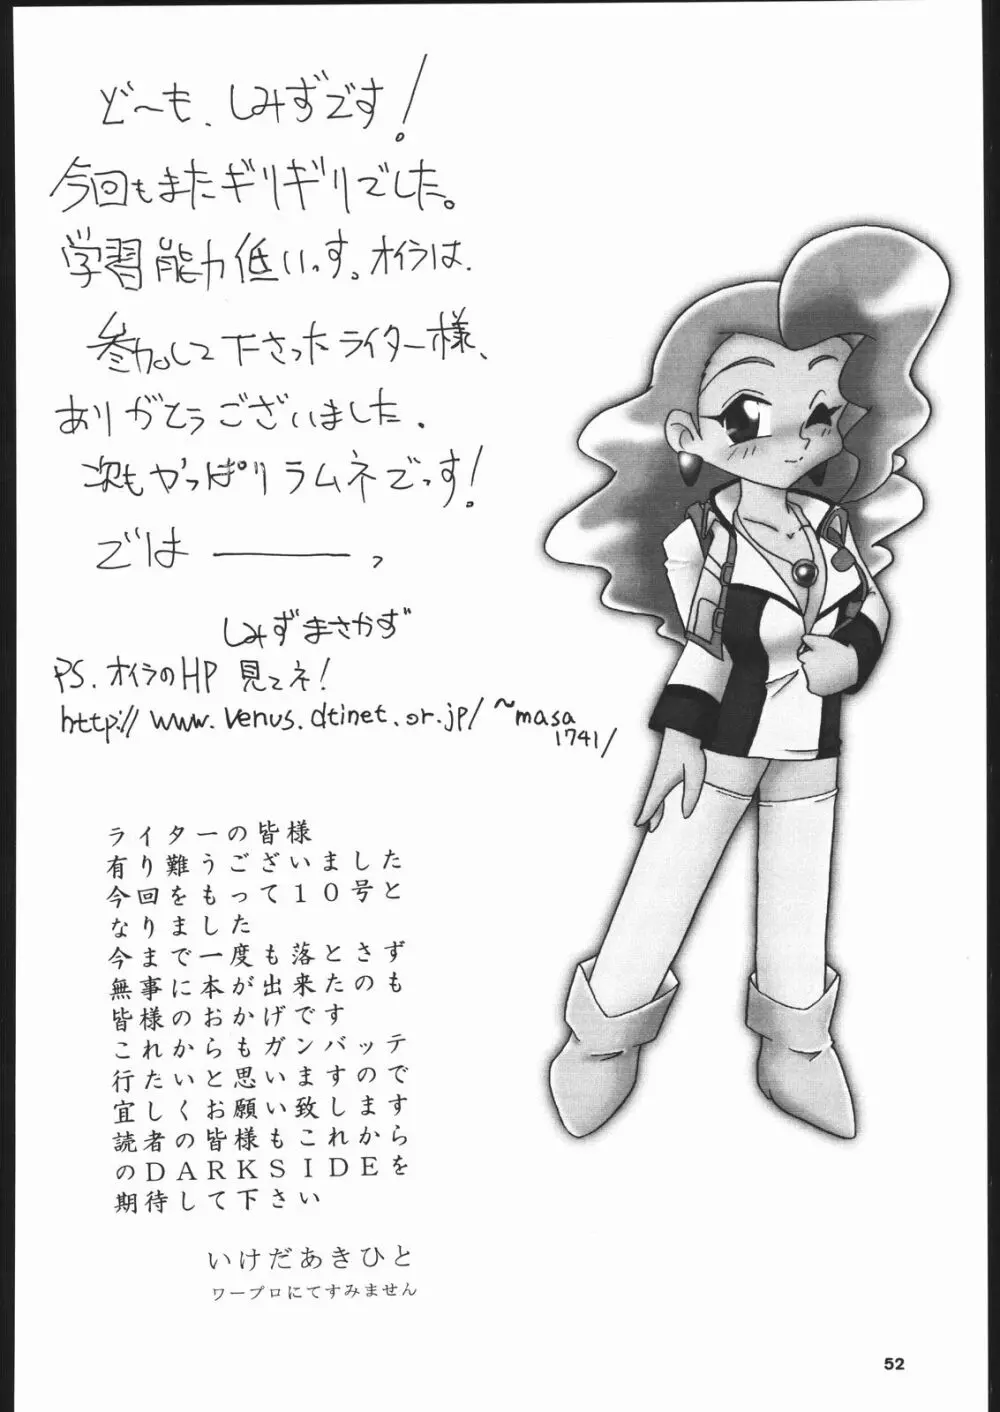 ど〜も、しみずです！
今回もまたギリギリでした。
学習能力低いっす。オイラは、
参加して下さったライター様、
ありがとうございました。
次もやっぱりラムネでっす！
では―――っ
しみずまさかず
PS. オイラのHP 見てネ！
http://www.venus.dtinet.or.jp/~masa
1741/
ライターの皆様
有り難うございました
今回をもって１０号と
なりました
今まで一度も落とさず
無事に本が出来たのも
皆様のおかげです
これからもガンバッテ
行たいと思いますので
宜しくお願い致します
読者の皆様もこれから
のＤＡＲＫＳＩＤＥを
期待して下さい
いけだあきひと
ワープロにてすみません
52